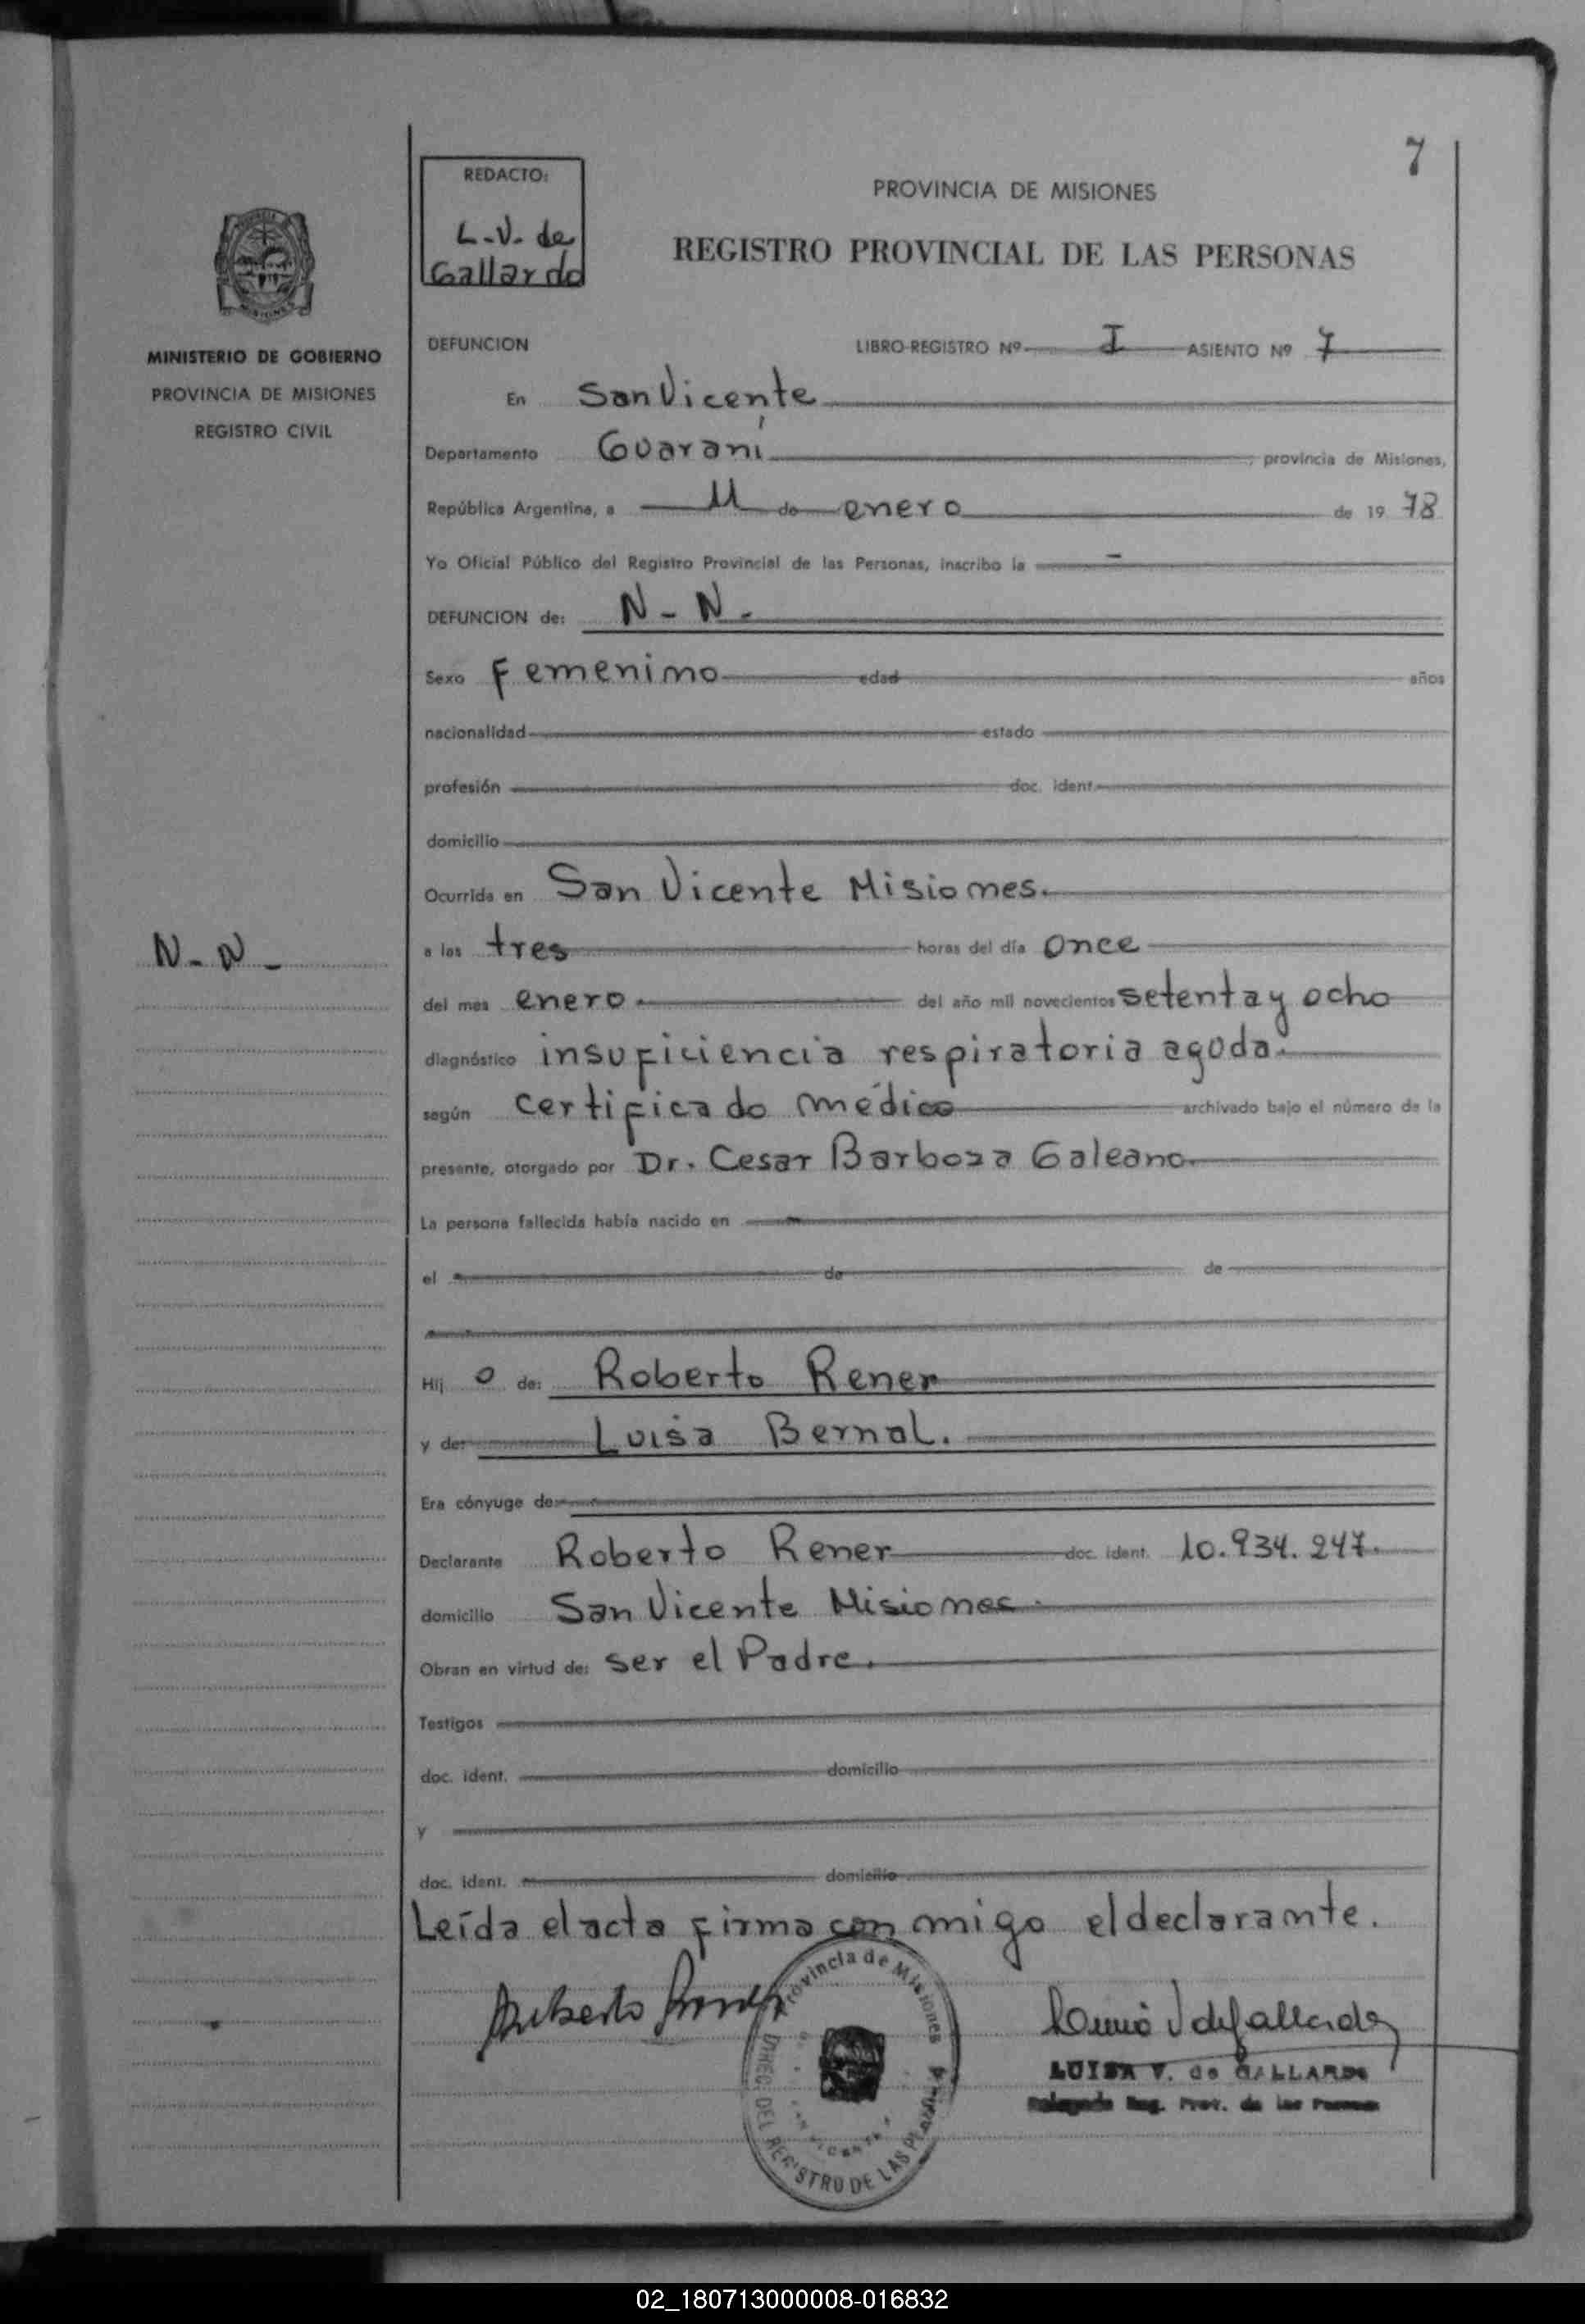 7
REDACTO:
L.V. de
Gallardo
PROVINCIA DE MISIONES
REGISTRO PROVINCIAL DE LAS PERSONAS
MINISTERIO DE GOBIERNO
PROVINCIA DE MISIONES
REGISTRO CIVIL
DEFUNCION LIBRO-REGISTRO Nº I ASIENTO Nº 7
En San Vicente
Departamento Guaraní, provincia de Misiones,
República Argentina, a 11 de enero de 1978
Yo Oficial Público del Registro Provincial de las Personas, inscribo la
DEFUNCION de: N-N-
Sexo Femenimo edad años
nacionalidad estado
profesión doc. ident.
domicilio
Ocurrida en San Vicente Misiones.
N-N-
a las tres horas del día once
del mes enero del año mil novecientos setenta y ocho
diagnóstico insuficiencia respiratoria aguda.
según certificado médico archivado bajo el número de la
presente, otorgado por Dr. Cesar Barboza Galeano.
La persona fallecida había nacido en
el de de
Hij o de: Roberto Rener
y de: Luisa Bernal.
Era cónyuge de:
Declarante Roberto Rener doc. ident. 10.934.247.
domicilio San Vicente Misiones.
Obran en virtud de: ser el Padre.
Testigos
doc. ident. domicilio
y
doc. ident. domicilio
Leída el acta firma con migo el declarante.
Provincia de Misiones
DIREC. DEL REGISTRO DE LAS PERSONAS
SAN VICENTE
LUISA V. de GALLARDO
Delegada Reg. Prov. de las Personas
02_180713000008-016832